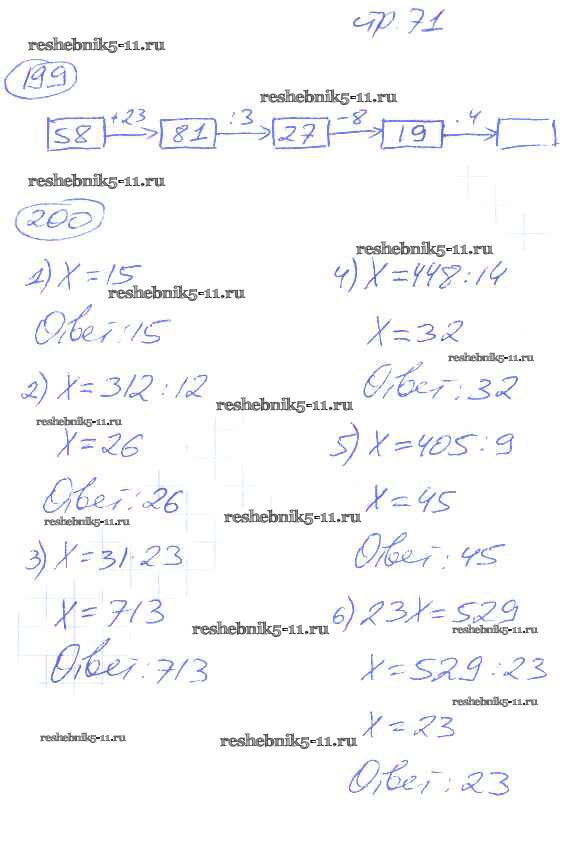 стр. 71
reshebnik5-11.ru
199
reshebnik5-11.ru
58 +23 81 :3 27 -8 19 ·4
reshebnik5-11.ru
200
1) X=15
reshebnik5-11.ru
Ответ: 15
2) X=312:12
reshebnik5-11.ru
X=26
Ответ: 26
reshebnik5-11.ru
3) X=31·23
X=713
reshebnik5-11.ru
Ответ: 713
reshebnik5-11.ru
reshebnik5-11.ru
reshebnik5-11.ru
4) X=448:14
X=32
reshebnik5-11.ru
Ответ: 32
reshebnik5-11.ru
5) X=405:9
X=45
reshebnik5-11.ru
Ответ: 45
6) 23X=529
reshebnik5-11.ru
X=529:23
reshebnik5-11.ru
X=23
Ответ: 23